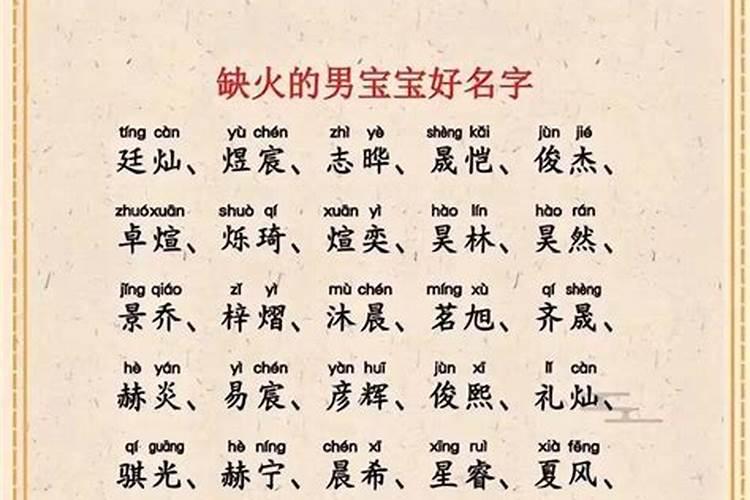 缺火的男宝宝好名字
tíng càn yù chén zhì yè shèng kǎi jùn jié
廷灿、煜宸、志晔、晟恺、俊杰、
zhuó xuān shuò qí xuān yì hào lín hào rán
卓煊、烁琦、煊奕、昊林、昊然、
jǐng qiáo zǐ yì mù chén míng xù qí shèng
景乔、梓熠、沐晨、茗旭、齐晟、
hè yán yì chén yàn huī jùn xī lǐ càn
赫炎、易宸、彦辉、俊熙、礼灿、
qí guāng hè níng chén xī xīng ruì xià fēng
骐光、赫宁、晨希、星睿、夏风、